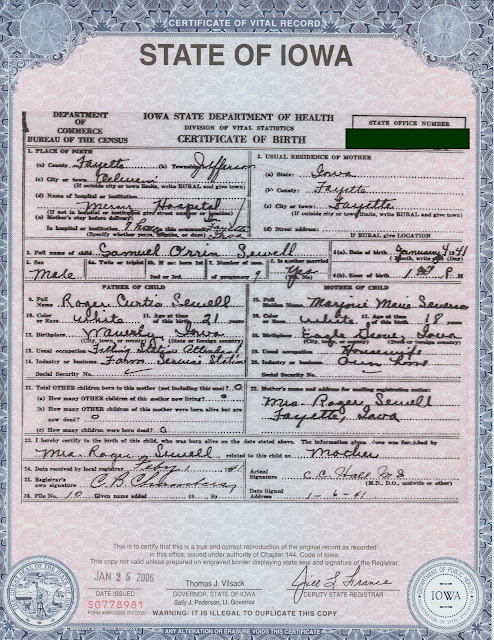 CERTIFICATE OF VITAL RECORD
STATE OF IOWA
DEPARTMENT OF COMMERCE BUREAU OF THE CENSUS
IOWA STATE DEPARTMENT OF HEALTH
DIVISION OF VITAL STATISTICS
CERTIFICATE OF BIRTH
STATE OFFICE NUMBER
1. PLACE OF BIRTH
(a) County Fayette (b) Township Jefferson
(c) City or town Oelwein
(If outside city or town limits, write RURAL and give town)
(d) Name of hospital or institution Mercy Hospital
(If not in hospital or institution give street number or location)
(e) Mother's stay before delivery:
In hospital or institution In this community
(Specify whether years, months, or days)
2. USUAL RESIDENCE OF MOTHER
(a) State: Iowa
(b) County: Fayette
(c) City or town: Fayette
(If outside city or town limits, write RURAL and give town)
(d) Street address:
If RURAL give LOCATION
3. Full name of child Samuel Orrin Sewell
4(a). Date of birth January 4 1941
(Month, write out) (Day)
5. Sex Male
6a. Twin or triplet 6b. If so: 1st 2nd or 3rd
7. Number mos. of pregnancy 9
8. Is mother married Yes
4(b). Hour of birth
FATHER OF CHILD
9. Full Name Roger Curtis Sewell
10. Color or Race. White 11. Age at time of this birth 21 years
12. Birthplace Waverly, Iowa
(City, town, or county) (State or foreign country)
13. Usual occupation Filling Station Attendant
14. Industry or business Farm Service Station
Social Security No.
MOTHER OF CHILD
15. Full Maiden Name Marjorie Marie
16. Color or Race. White 17. Age at time of this birth 18 years
18. Birthplace Eagle Grove, Iowa
(City, town, or county) (State or foreign country)
19. Usual occupation Housewife
20. Industry or business Own Home
21. Total OTHER children born to this mother (not including this one) ? 0
(a) How many OTHER children of this mother now living? 0
(b) How many OTHER children of this mother were born alive but are now dead? 0
(c) How many children were born dead? 0
22. Mother's name and address for mailing registration notice:
Mrs. Roger Sewell
Fayette, Iowa
23. I hereby certify to the birth of this child, who was born alive on the date stated above. The information given above was furnished by
Mrs. Roger Sewell related to this child as Mother
24. Date received by local registrar Feby 1 41
25. Registrar's own signature C. B. Chambers
26. File No. 10 Given name added 19 By
Actual Signature C. C. Hall M.D.
(M.D., D.O., midwife or other)
Date Signed 1-6-41
Address
This is to certify that this is a true and correct reproduction of the original record as recorded
in this office, issued under authority of Chapter 144, Code of Iowa.
This copy not valid unless prepared on engraved border displaying state seal and signature of the Registrar.
JAN 25 2006
DATE ISSUED
S0778981
Thomas J. Vilsack
GOVERNOR, STATE OF IOWA
Sally J. Pederson, Lt. Governor
Jill L. France
DEPUTY STATE REGISTRAR
WARNING: IT IS ILLEGAL TO DUPLICATE THIS COPY
IOWA
ANY ALTERATION OR ERASURE VOIDS THIS CERTIFICATE